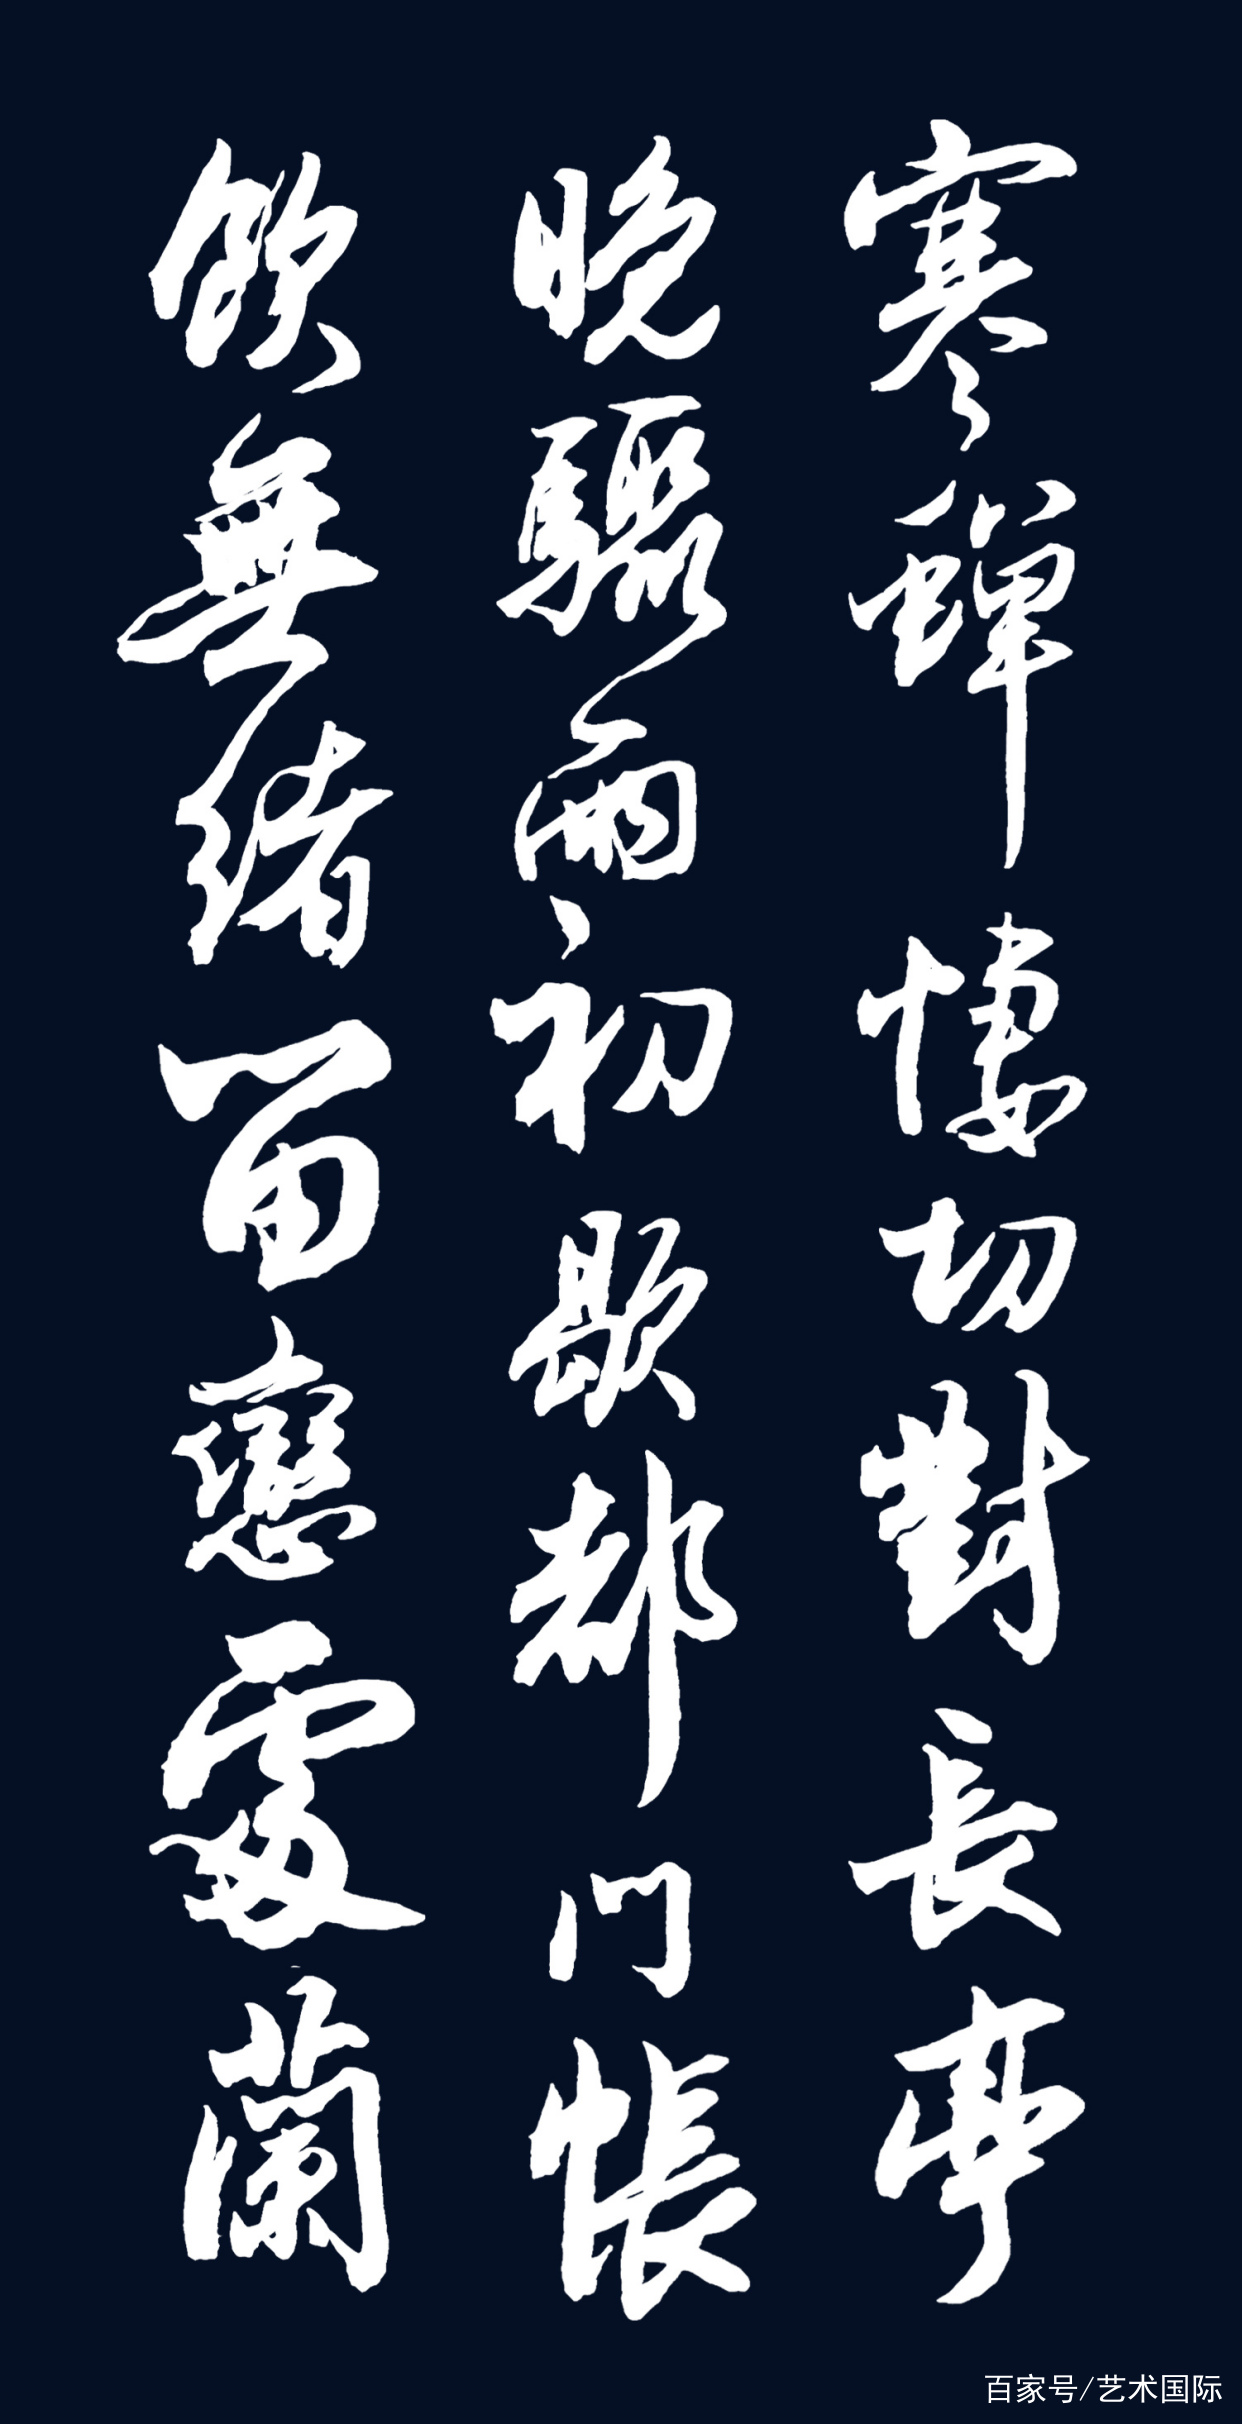 寒蟬悽切對長亭
晚驟雨初歇都門帳
飲無緒留戀處蘭
百家号/艺术国际